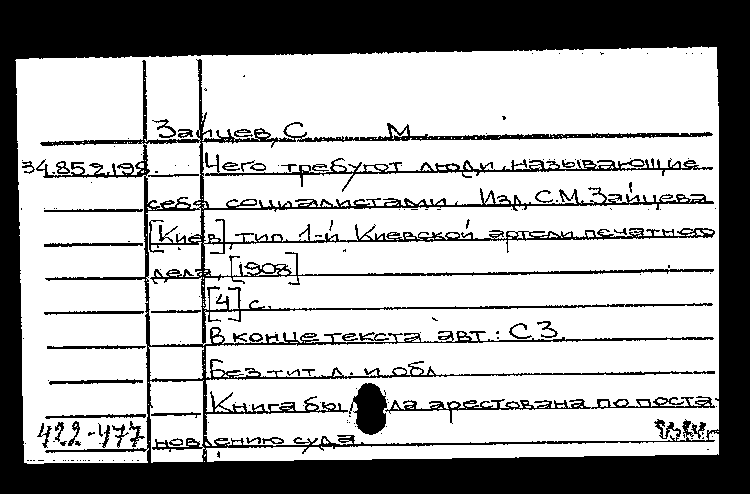 Зайцев, С М.
34.852.198. Чего требуют люди, называющие
себя социалистами. Изд. С.М. Зайцева
[Киев], тип. 1-й Киевской артели печатного
дела, [1908]
[4] с.
В конце текста авт.: С.З.
Без тит. л. и обл.
Книга была арестована по поста-
422-477 новлению суда.